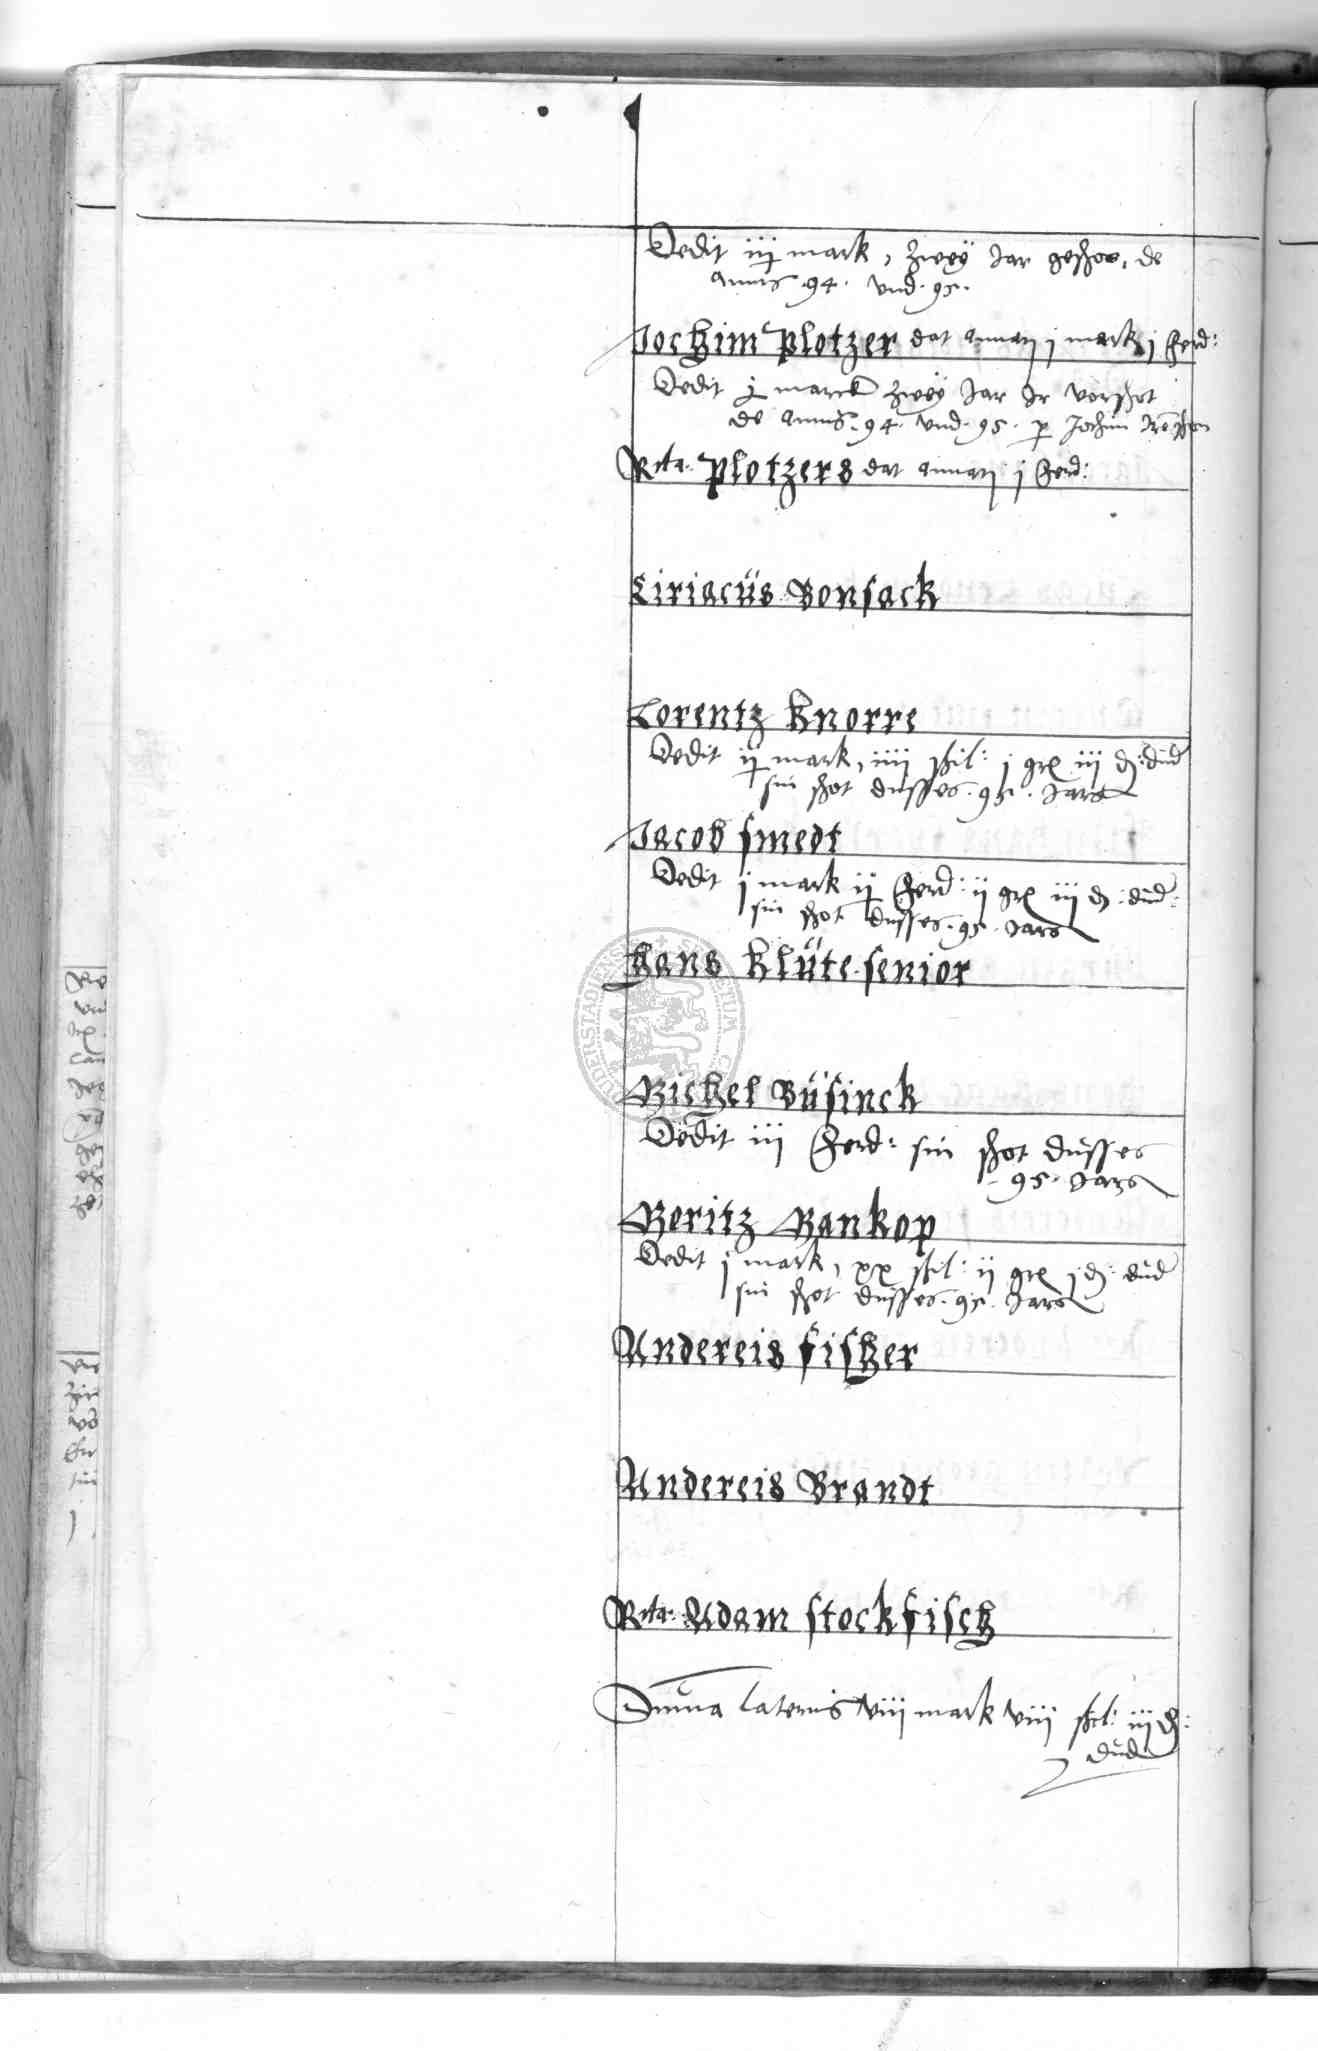 Dedit iij mark, zwey Jar geschos, de
annis 94. vnd. 95.
Jochim Plotzer dat annatj j mark j ferd:
Dedit ij marck zwey Jar Jr vorschot
de annis. 94. vnd. 95. p Jochim
Rcta. Plotzers dat annatj j ferd:
Ciriacüs Bonsack
Lorentz Knorre
Dedit ij mark, iiij schil: j gr iij d: düd
sin schot dusses. 95. Jars
Jacob smedt
Dedit j mark ij ferd: ij gr iij d: düd:
sin schot dusses. 95. Jars
Hans Klüte senior
Michel Büsinck
Dedit iij ferd: sin schot dusses
95. Jars
Moritz Mankop
Dedit j mark, xx schil: ij gr j d: düd
sin schot dusses. 95. Jars
Andereis fischer
Andereis Brandt
Rcta. Adam stockfisch
Suma lateris viij mark viij schil: iij d:
düd